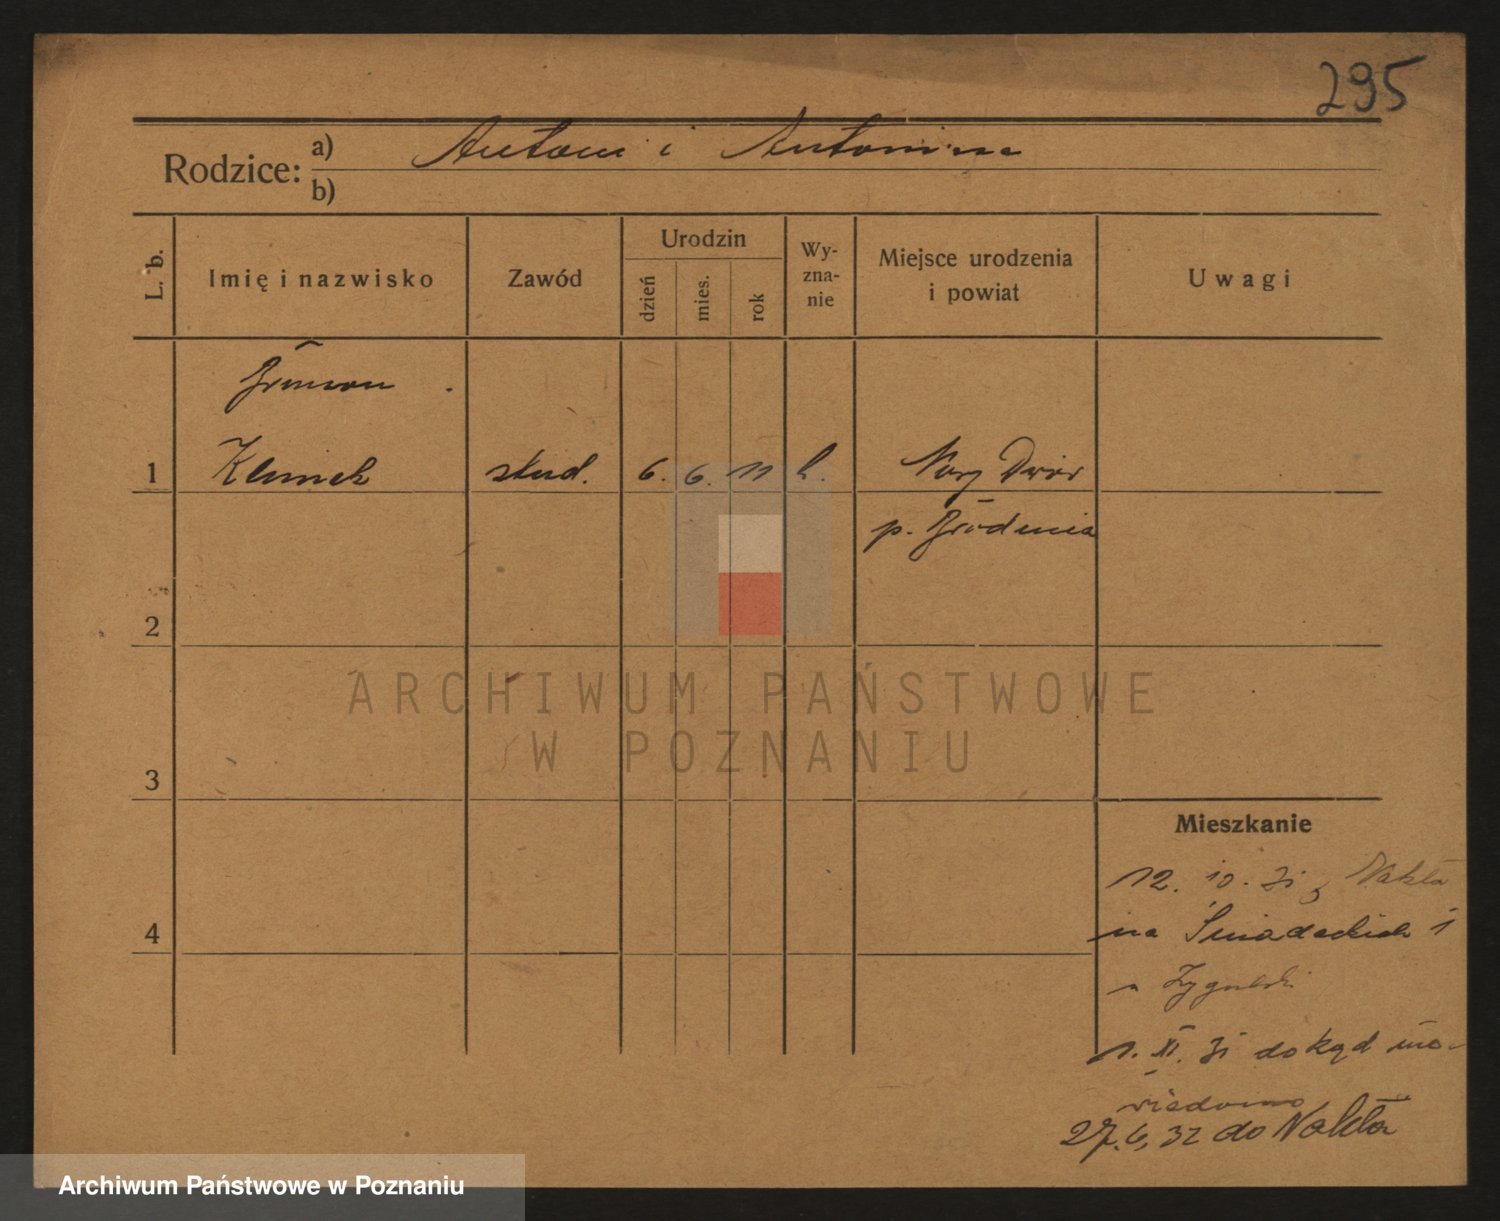 295
Rodzice: a) Antoni i Antonina
b)
L. b.
Imię i nazwisko
Zawód
Urodzin
dzień
mies.
rok
Wy-
zna-
nie
Miejsce urodzenia
i powiat
Uwagi
1 Klimek stud. 6. 6. 11 k. Nowy Dwór
p.
2
ARCHIWUM PAŃSTWOWE
W POZNANIU
3
Mieszkanie
12. 10. 31 z Nakła
4
na Śniadeckich 1
1. XI. 31 dokąd nie-
wiadomo
27. 6, 32 do Nakła
Archiwum Państwowe w Poznaniu